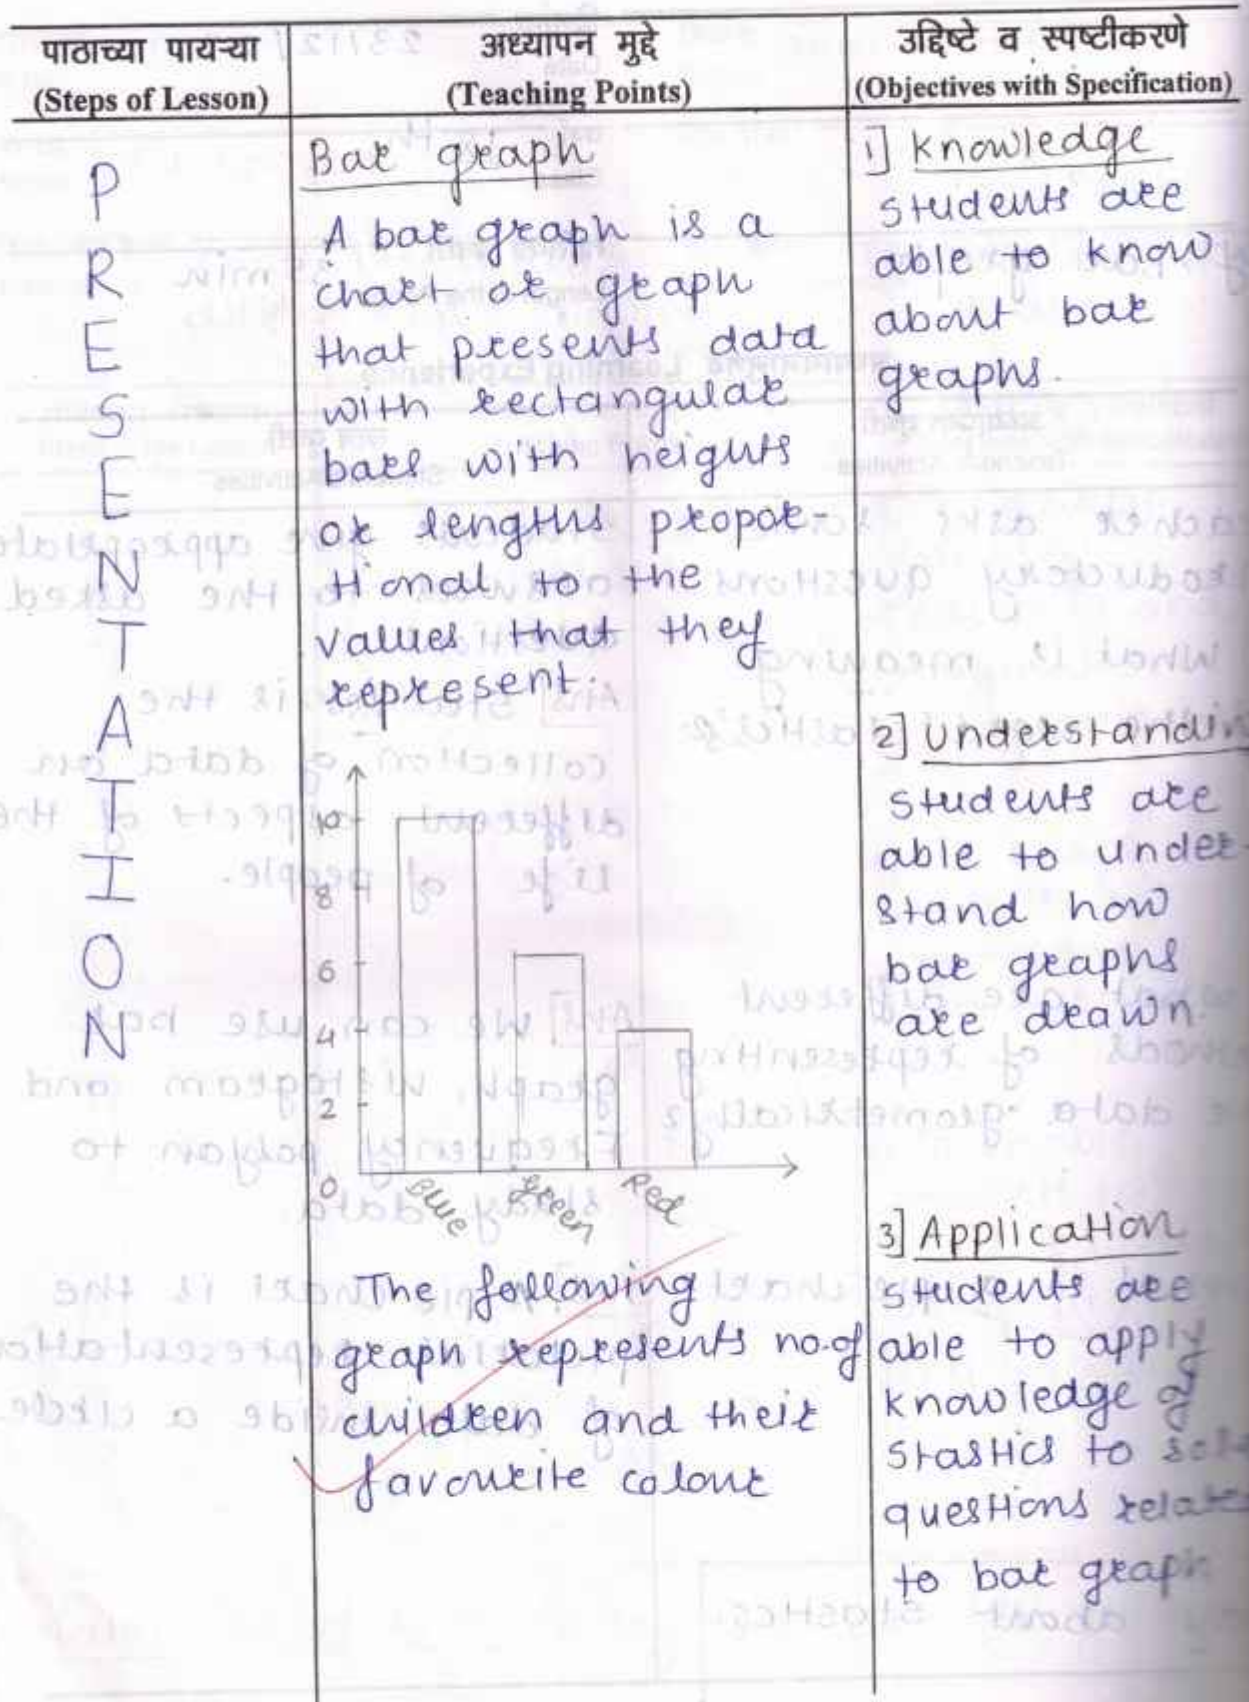 पाठाच्या पायऱ्या
(Steps of Lesson)
अध्यापन मुद्दे
(Teaching Points)
उद्दिष्टे व स्पष्टीकरणे
(Objectives with Specification)
P
R
E
S
E
N
T
A
T
I
O
N
Bar graph
A bar graph is a
chart or graph
that presents data
with rectangular
bars with heights
or lengths propor-
tional to the
values that they
represent.
10
8
6
4
2
0
Blue
green
Red
The following
graph represents no. of
children and their
favourite colour
1] Knowledge
Students are
able to know
about bar
graphs.
2] Understandin
Students are
able to under-
stand how
bar graphs
are drawn.
3] Application
Students are
able to apply
knowledge of
Stastics to
questions relate
to bar graph